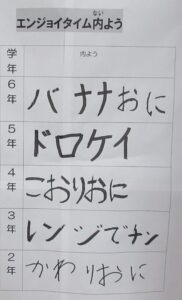 エンジョイタイム内よう
ない
学年
内よう
6年
バナナおに
5年
ドロケイ
4年
こおりおに
3年
レンジでチン
2年
かわりおに